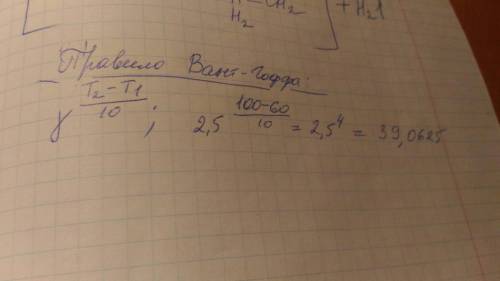 H₂ — CH₂ + H₂O
Правило Вант-Гоффа:
γ^((T₂-T₁)/10); 2,5^((100-60)/10) = 2,5⁴ = 39,0625